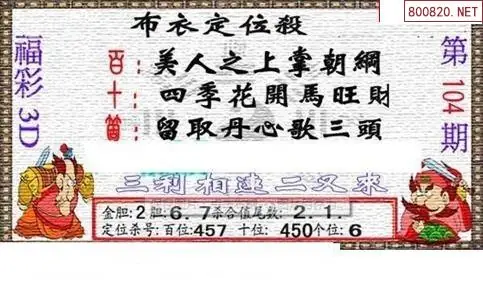 800820.NET
布衣定位殺
福彩3D
第104期
百：美人之上掌朝綱
十：四季花開馬旺財
個：留取丹心歌三頭
三剩相连二又来
金胆:2 胆:6.7杀合值尾数:2.1.
定位杀号:百位:457 十位:450个位:6